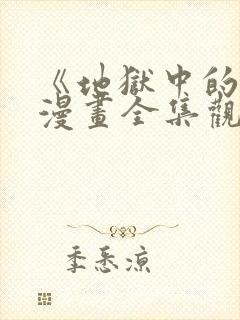 《地獄中的
漫畫全集觀
季悉涼